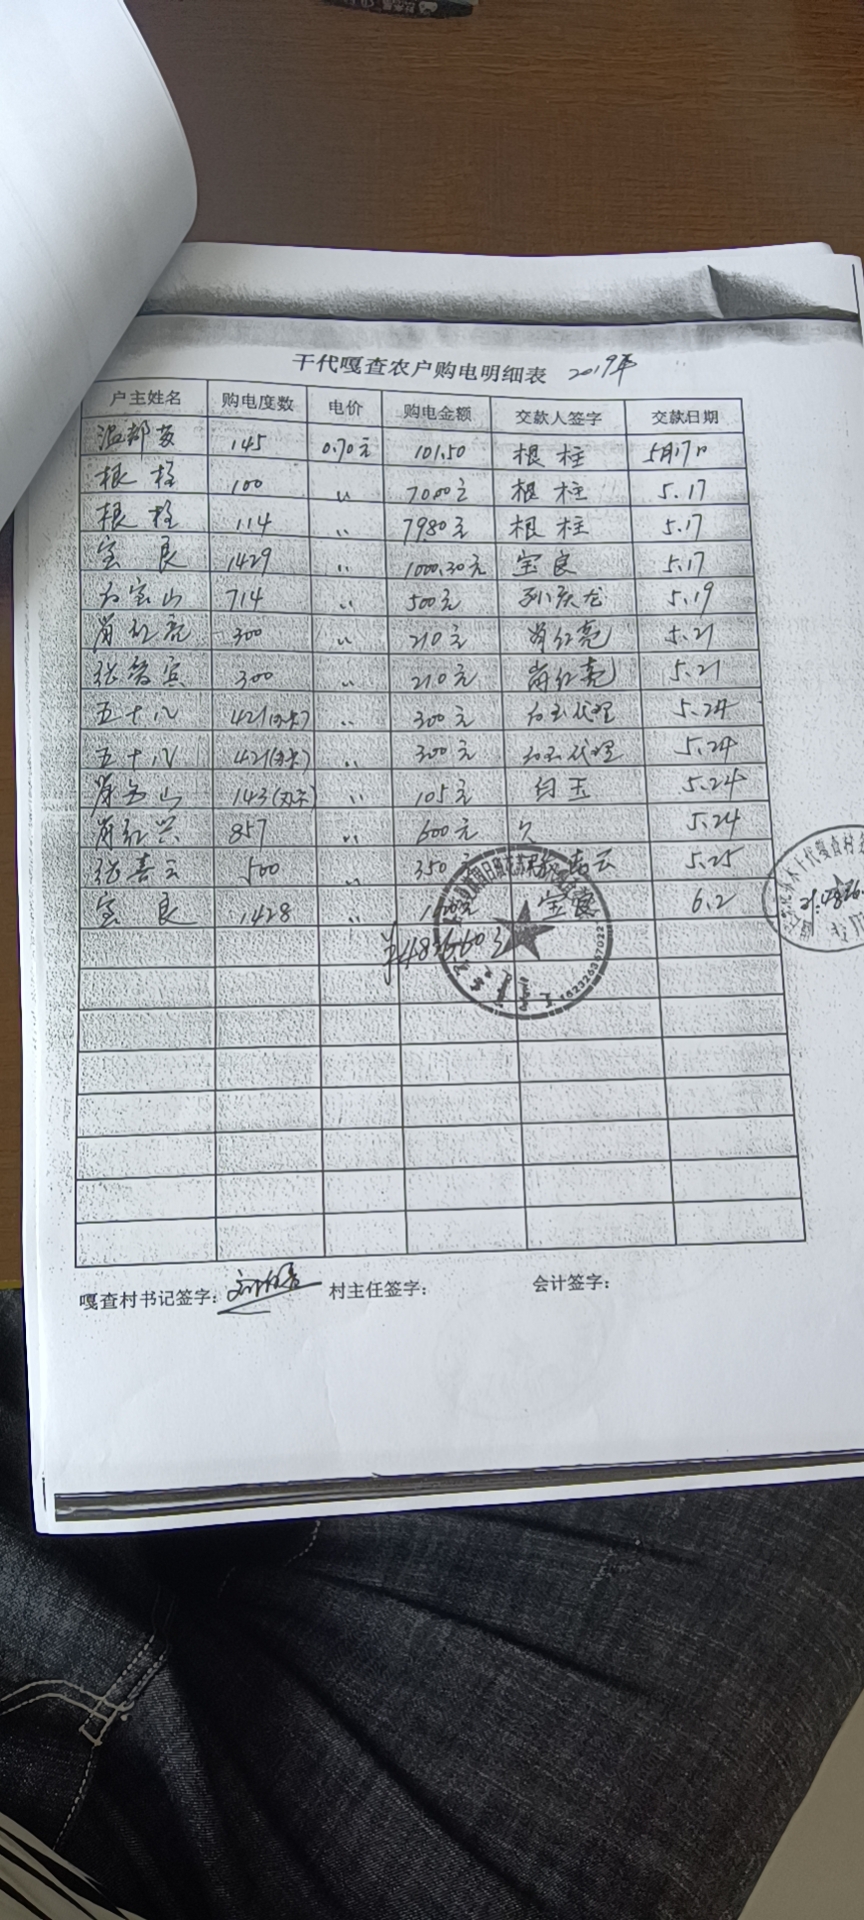 干代嘎查农户购电明细表 2019年
户主姓名 购电度数 电价 购电金额 交款人签字 交款日期
温都苏 145 0.70元 101.50 根柱 5月17日
根柱 100 〃 70.00元 根柱 5.17
根柱 114 〃 79.80元 根柱 5.17
宝良 1429 〃 1000.30元 宝良 5.17
石宝山 714 〃 500元 5.19
肖红亮 300 〃 210元 肖红亮 5.21
300 〃 210元 肖红亮 5.21
五十八 421 〃 300元 代理 5.24
五十八 421 〃 300元 代理 5.24
山 143 〃 105元 白玉 5.24
肖红兴 857 〃 600元 欠 5.24
张喜云 500 〃 350元 张喜云 5.25
宝良 1428 〃 宝良 6.2
嘎查村书记签字: 村主任签字: 会计签字: